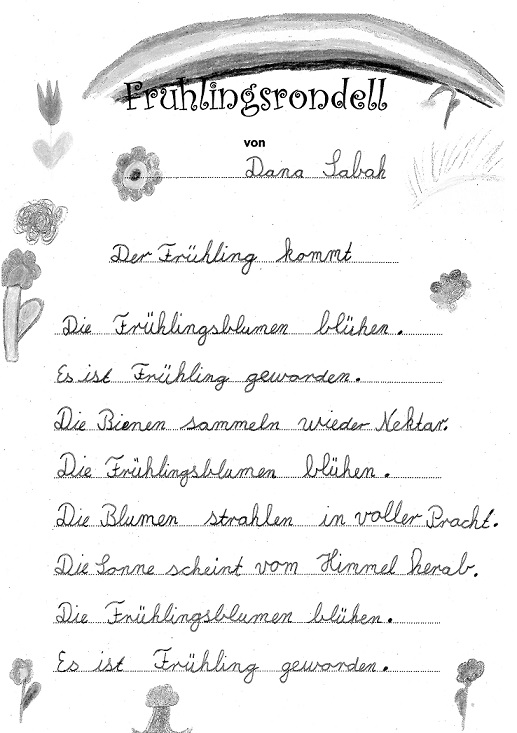 Frühlingsrondell
von
Dana Sabah
Der Frühling kommt
Die Frühlingsblumen blühen.
Es ist Frühling geworden.
Die Bienen sammeln wieder Nektar.
Die Frühlingsblumen blühen.
Die Blumen strahlen in voller Pracht.
Die Sonne scheint vom Himmel herab.
Die Frühlingsblumen blühen.
Es ist Frühling geworden.